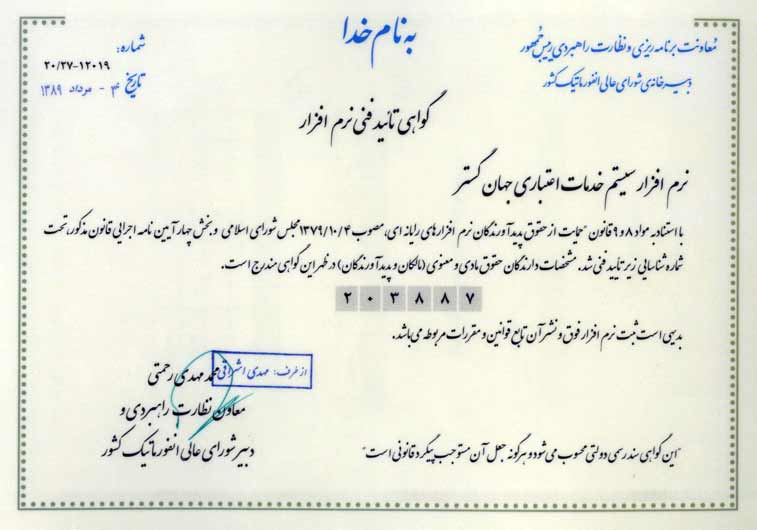 به نام خدا
معاونت برنامه ریزی و نظارت راهبردی رییس جمهور
دبیرخانه‌ی شورای عالی انفورماتیک کشور
شماره:
۲۰/۲۷-۱۲۰۱۹
تاریخ ۴ - مرداد ۱۳۸۹
گواهی تائید فنی نرم افزار
نرم افزار سیستم خدمات اعتباری جهان گستر
با استناد به مواد ۸ و ۹ قانون حمایت از حقوق پدیدآورندگان نرم افزارهای رایانه ای، مصوب ۱۳۷۹/۱۰/۴ مجلس شورای اسلامی و بخش چهار آیین نامه اجرایی قانون مذکور، تحت
شماره شناسایی زیر تایید فنی شد. مشخصات دارندگان حقوق مادی و معنوی (مالکان و پدیدآورندگان) در ظهر این گواهی مندرج است.
۲۰۳۸۸۷
بدیهی است ثبت نرم افزار فوق و نشر آن تابع قوانین و مقررات مربوطه می‌باشد.
از طرف: مهدی اشراقی
محمد مهدی رحمتی
معاون نظارت راهبردی و
دبیر شورای عالی انفورماتیک کشور
"این گواهی سند رسمی دولتی محسوب می‌شود و هرگونه جعل آن مستوجب پیگرد قانونی است"